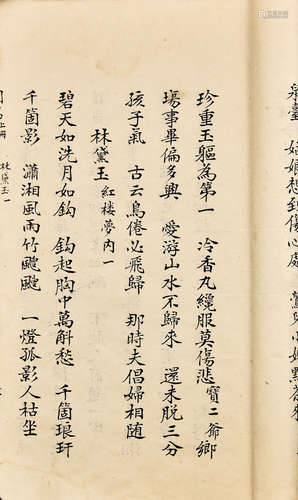 姑娘想到傷心處
珍重玉軀為第一 冷香丸纔服莫傷悲 寶二爺鄉
場事畢偏多興 愛游山水不歸來 還未脫三分
孩子氣 古云鳥倦必飛歸 那時夫倡婦相隨
林黛玉 紅楼夢內一
碧天如洗月如鈎 鈎起胸中萬斛愁 千箇琅玕
千箇影 瀟湘風雨竹颼颼 一燈孤影人枯坐
林黛玉一